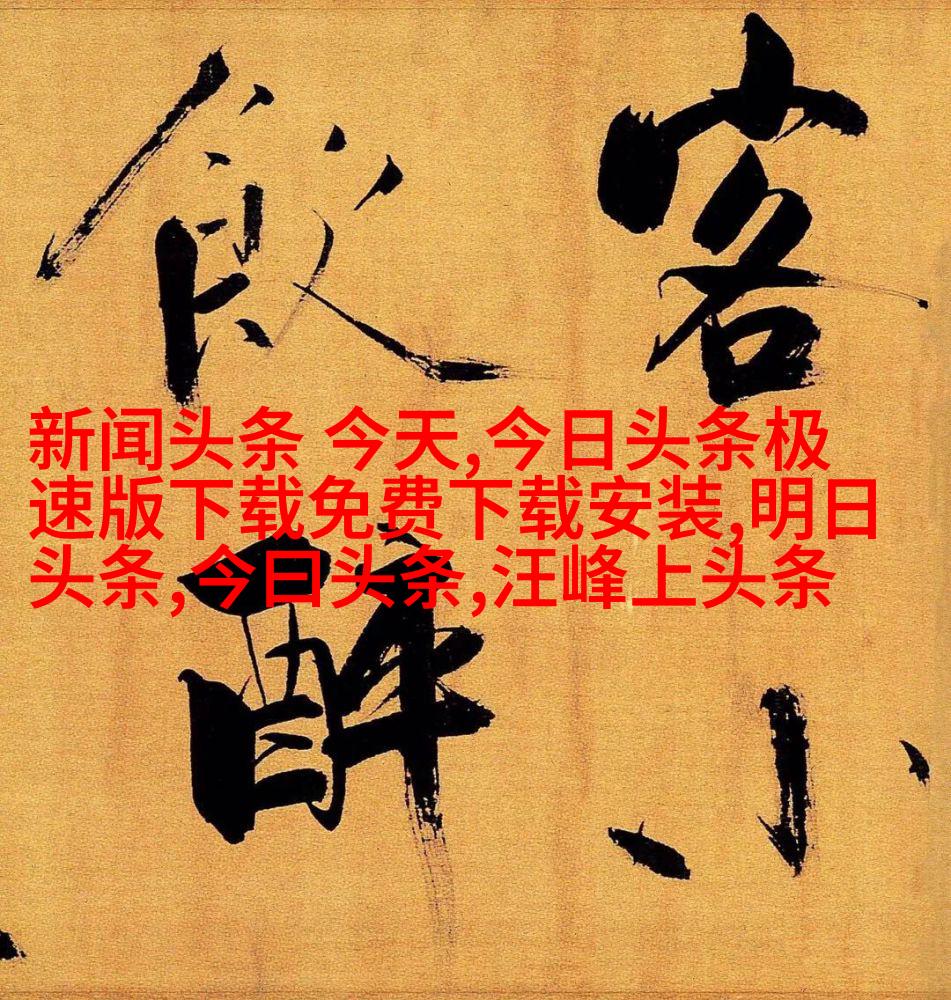 客小
飲醉
新闻头条 今天,今日头条极
速版下载免费下载安装,明日
头条,今曰头条,汪峰上头条